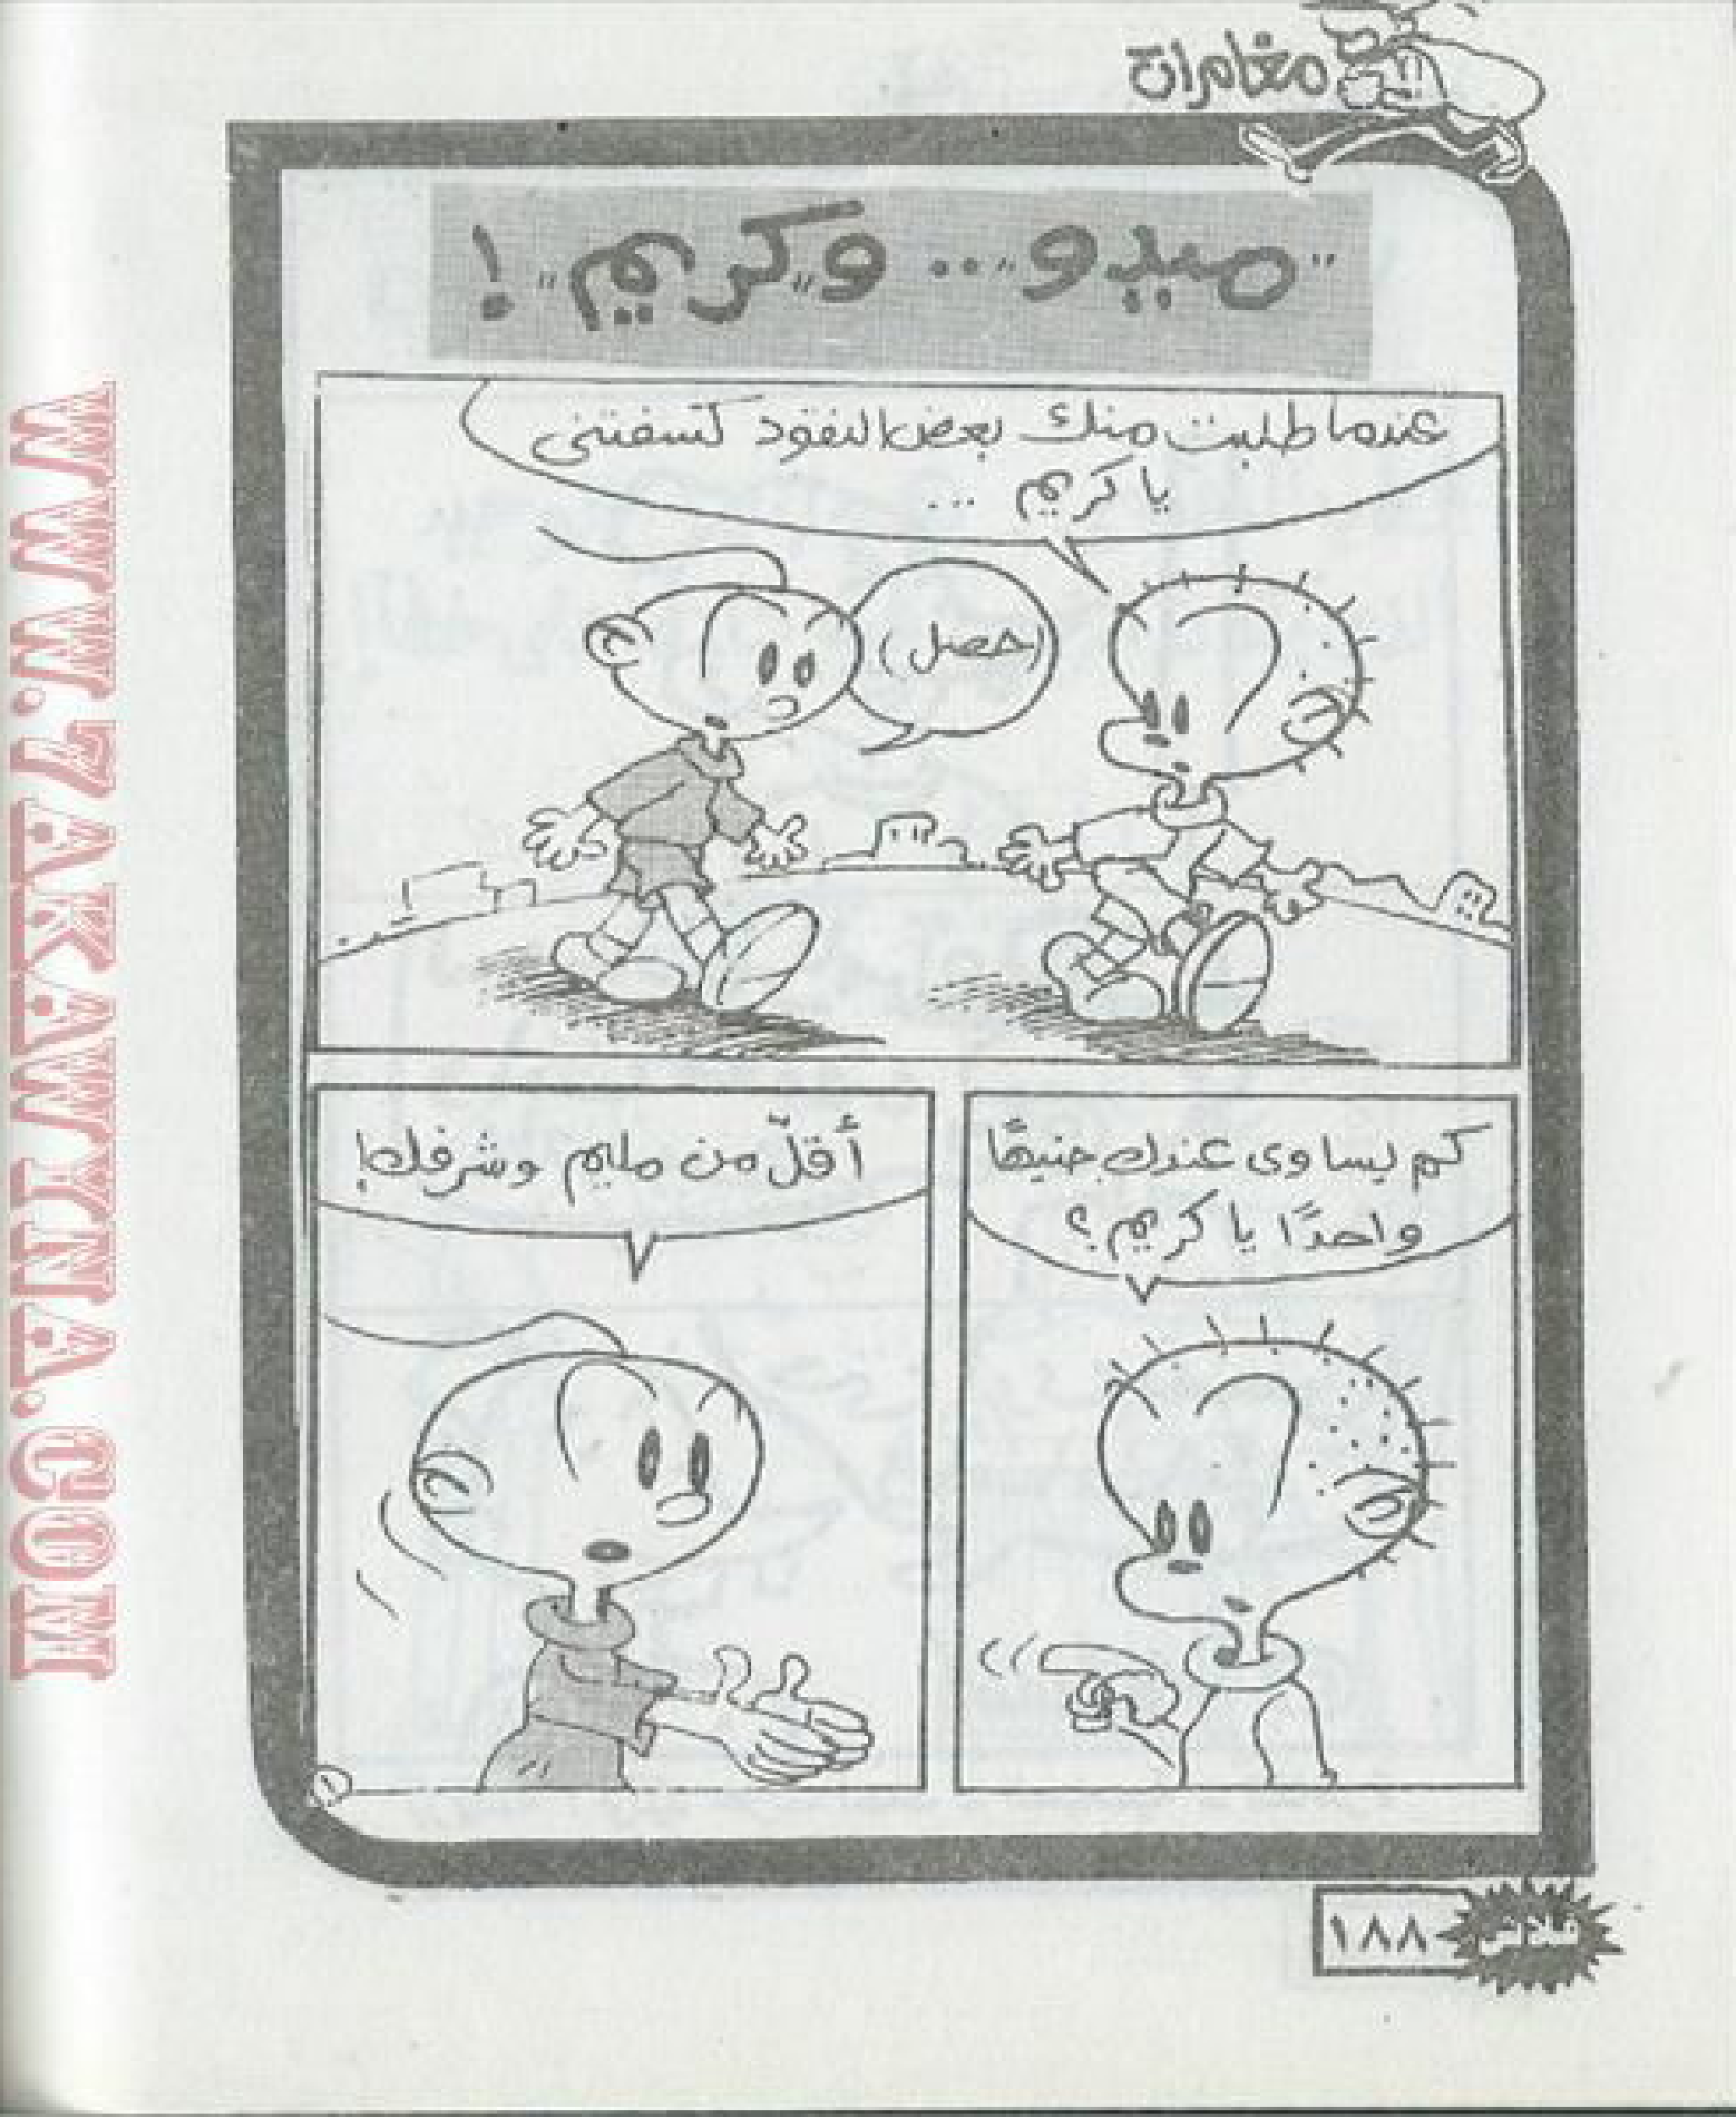 مغامرات
"ميدو"... و"كريم"!
عندما طلبت منك بعض النقود كسفتنى
يا كريم ...
(حصل)
كم يساوى عندك جنيهًا
واحدًا يا كريم؟
أقلّ من مليم وشرفك!
فلاش
١٨٨
WWW.7AKAWTNA.COM